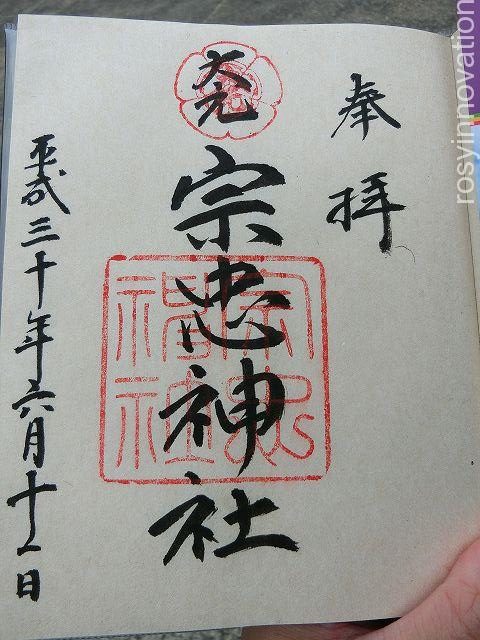 奉拝
大元
宗忠神社
宗忠神社
平成三十年六月十一日
rosyinnovation